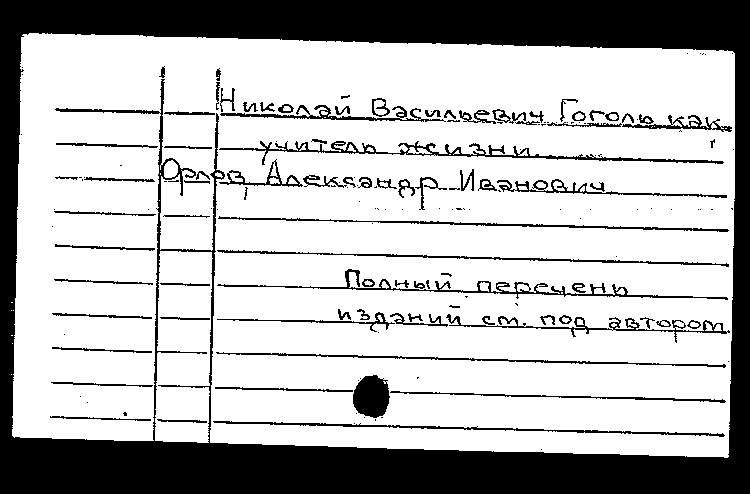 Николай Васильевич Гоголь как
учитель жизни.
Орлов, Александр Иванович
Полный перечень
изданий см. под автором